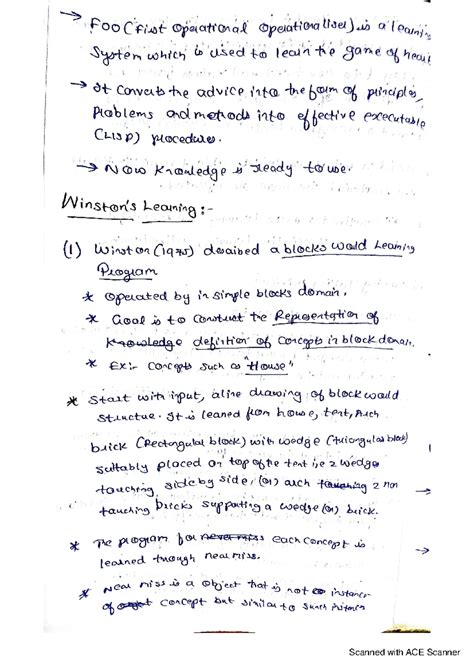 → FOO (First operational operationaliser) is a learning
system which is used to learn the game of hearts
→ It converts the advice into the form of principles,
problems and methods into effective executable
(LISP) procedures.
→ Now knowledge is ready to use.
Winston's Learning :-
(1) Winston (1975) described a blocks world Learning
Program
* operated by in simple blocks domain.
* Goal is to construct the Representation of
knowledge definition of concepts in block domain.
* Ex:- concepts such as "House"
* Start with input, a line drawing of block world
structue. It is leaned from house, tent, Arch
brick (Rectangular block) with wedge (triangular block)
suitably placed on top of the tent i.e 2 wedge
touching side by side, (or) arch touching 2 non
touching bricks supporting a wedge (or) brick.
→
* The program for never miss each concept is
learned through near miss.
→
* Near miss is a object that is not instance
of concept but similar to such
Scanned with ACE Scanner